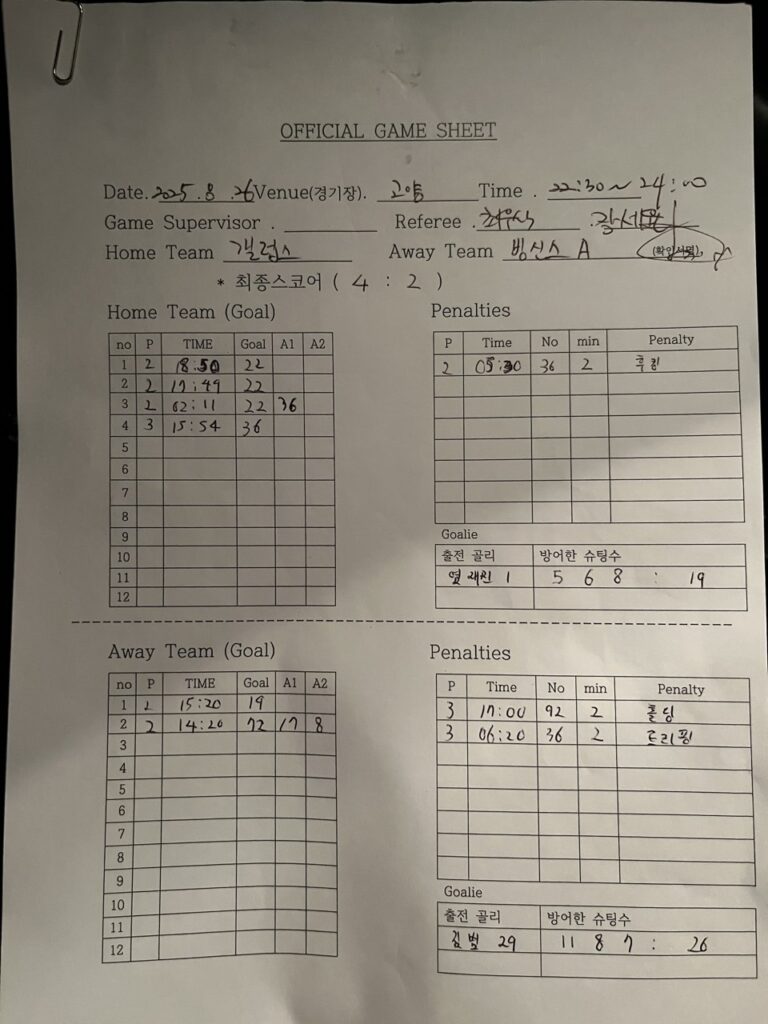 OFFICIAL GAME SHEET
Date. 2025. 8. 26 Venue(경기장). 고양 Time . 22:30 ~ 24:00
Game Supervisor . Referee . 최우식 .
Home Team 갤럽스 Away Team 빙신스 A (확인서명).
* 최종스코어 ( 4 : 2 )
Home Team (Goal)
no P TIME Goal A1 A2
1 2 18:50 22
2 2 17:49 22
3 2 02:11 22 36
4 3 15:54 36
5
6
7
8
9
10
11
12
Penalties
P Time No min Penalty
2 05:30 36 2 후킹
Goalie
출전 골리 방어한 슈팅수
1 5 6 8 : 19
Away Team (Goal)
no P TIME Goal A1 A2
1 2 15:20 19
2 2 14:20 72 17 8
3
4
5
6
7
8
9
10
11
12
Penalties
P Time No min Penalty
3 17:00 92 2 홀딩
3 06:20 36 2 트리핑
Goalie
출전 골리 방어한 슈팅수
김범 29 11 8 7 : 26